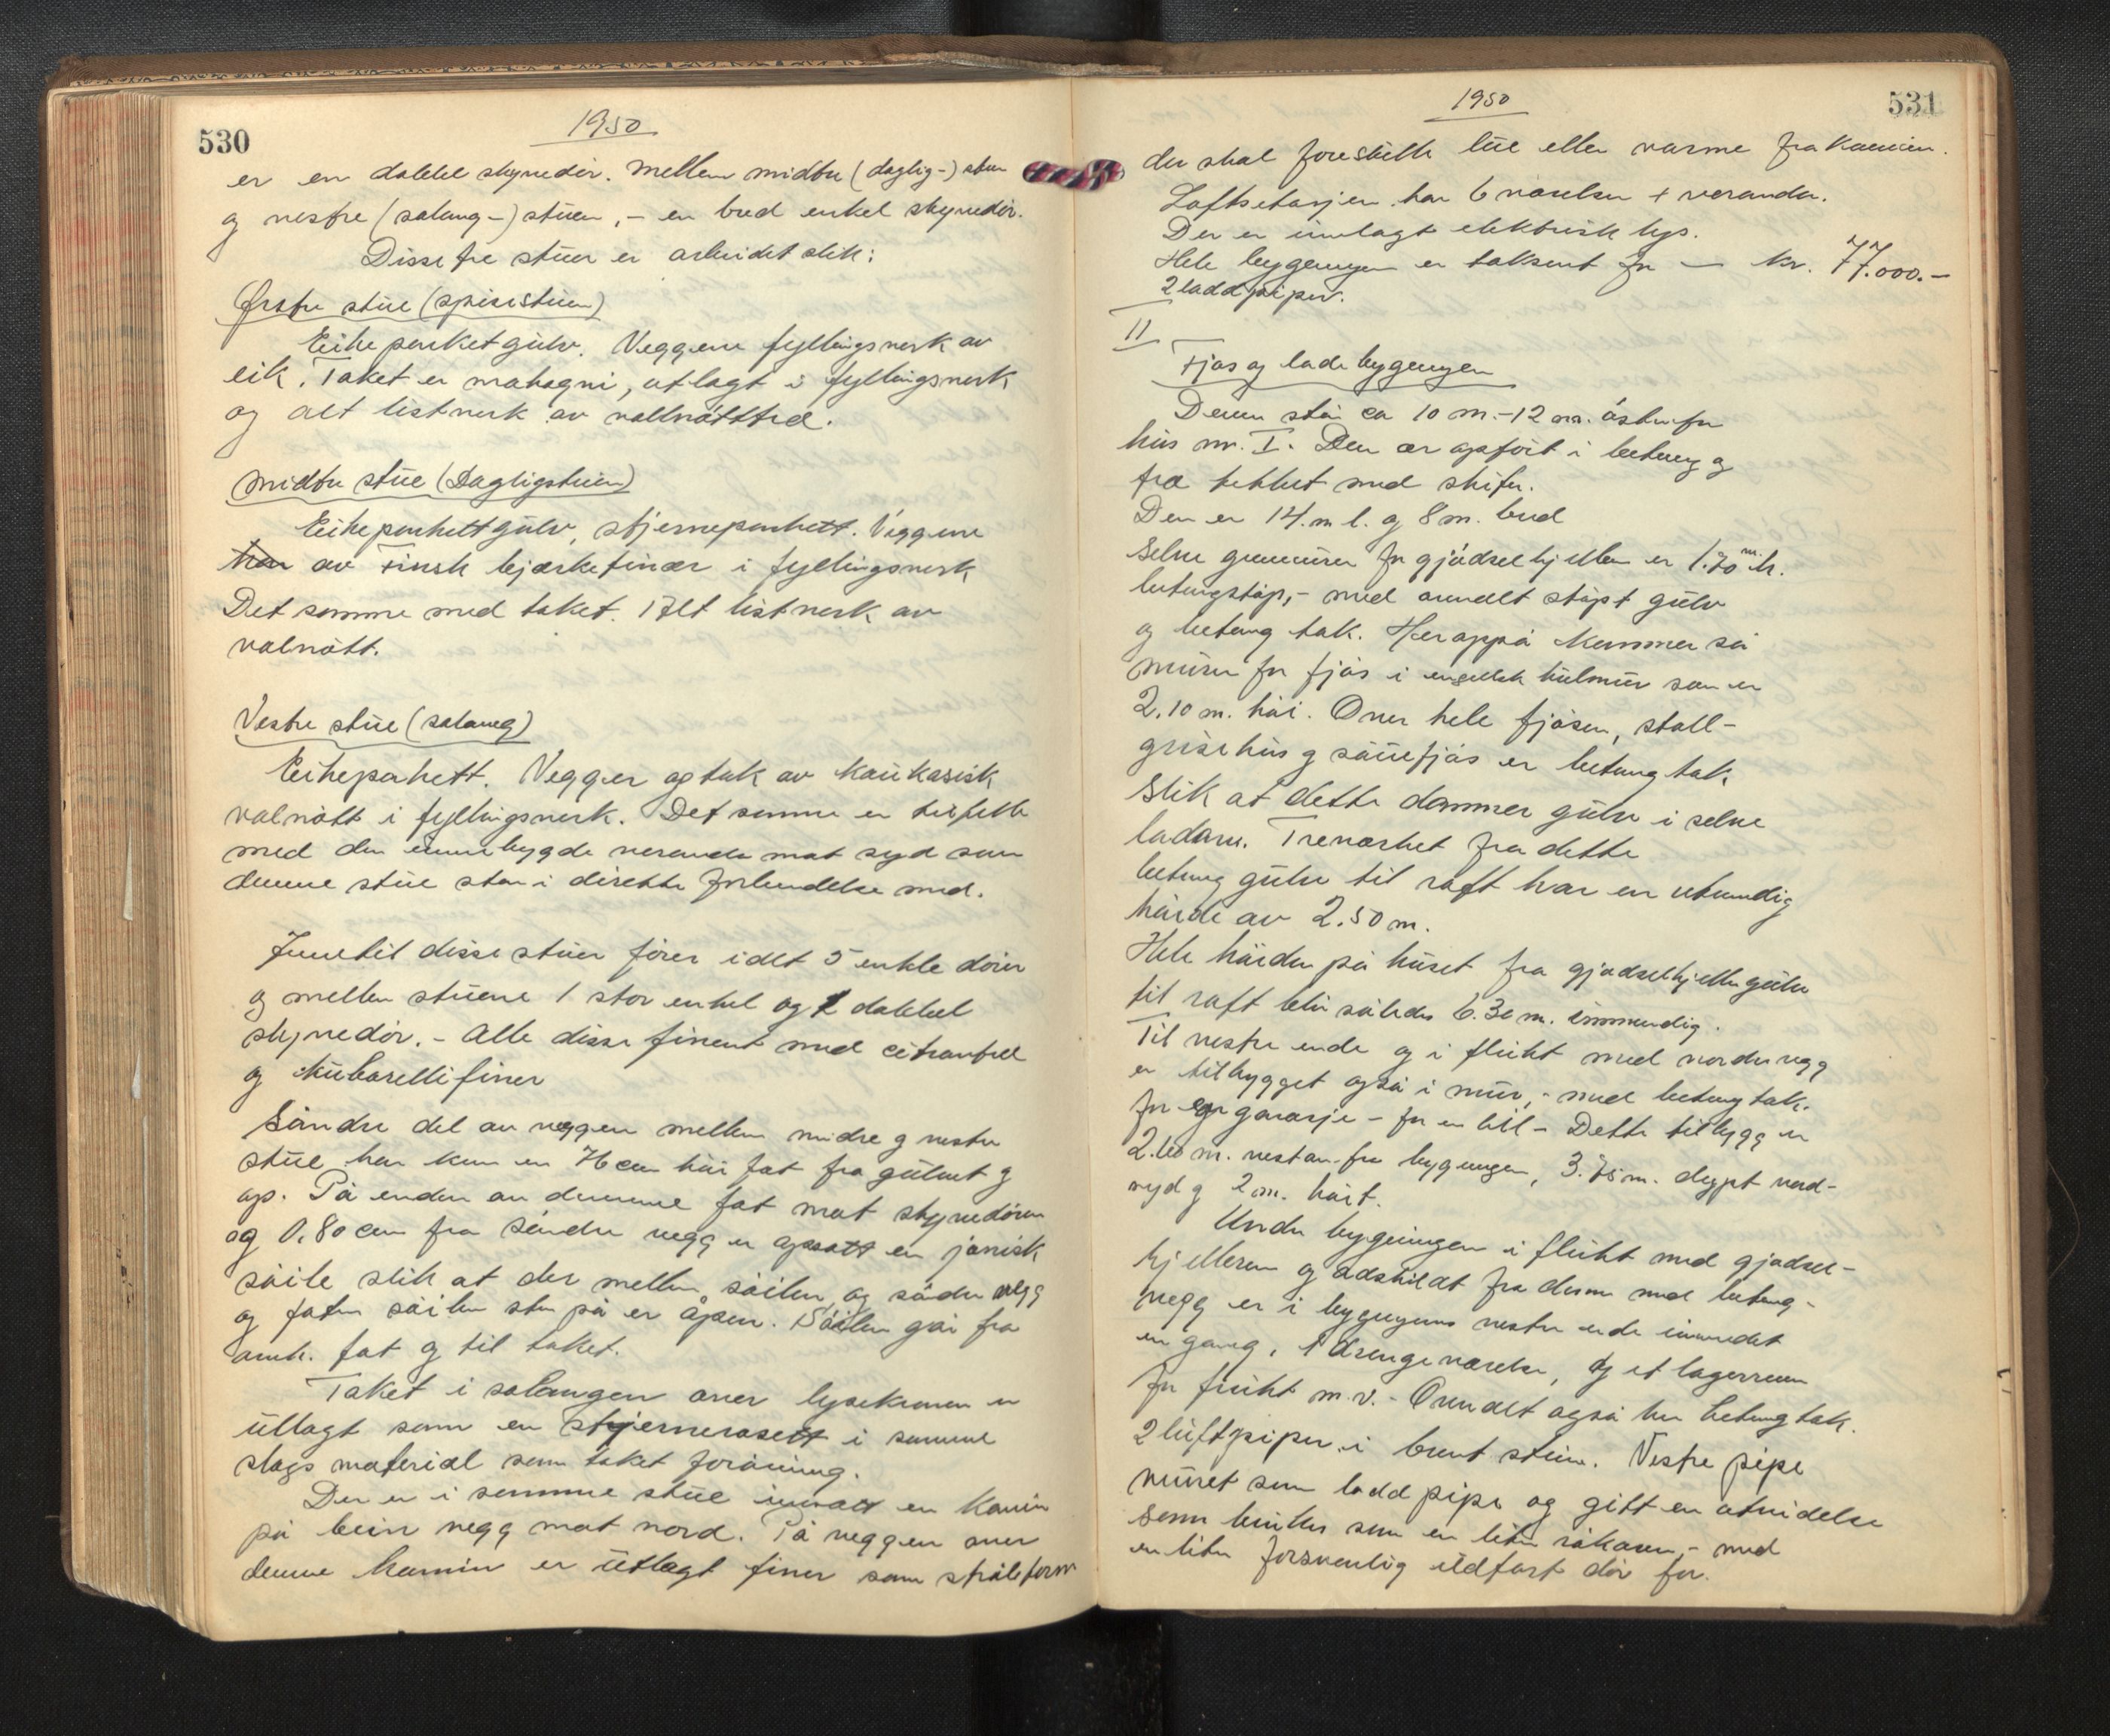 530
1950
er en dobbel skyvedør. Mellem midtre (daglig-) stuen
og vestre (salong-) stuen, - en bred enkel skyvedør.
Disse tre stuer er arbeidet slik:
Østre stue (spisestuen)
Eikeparketgulv. Veggene fyllingsverk av
eik. Taket er mahogni, utlagt i fyllingsverk
og alt listverk av vallnøtttre.
Midtre stue (Dagligstuen)
Eikeparkettgulv, stjerneparkett. Veggene
av Finsk bjerkefinær i fyllingsverk
Det samme med taket. Alt listverk av
valnøtt.
Vestre stue (salong)
Eikeparkett. Vegger og tak av kaukasisk
valnøtt i fyllingsverk. Det samme er tilfelle
med den innebygde veranda mot syd som
denne stue står i direkte forbindelse med.
Inn til disse stuer fører i alt 5 enkle dører
og mellem stuene 1 stor enkel og 1 dobbel
skyvedør. - Alle disse finert med citrontre
og finer
Søndre del av veggen mellem midre og vestre
stue har kun en 76 cm høi fot fra gulvet og
op. På enden av denne fot mot skyvedøren
og 0,80 cm fra søndre vegg er opsatt en jonisk
søile slik at der mellem søilen og søndre vegg
og foten søilen står på er åpen. Søilen går fra
omh. fot og til taket.
Taket i salongen over lysekronen er
utlagt som en stjernerosett i samme
slags material som taket forøvrig.
Der er i samme stue innsatt en kamin
på bein vegg mot nord. På veggen over
denne kamin er utlagt finer som stråleform
531
1950
der skal forestille lue eller varme fra kaminen.
Loftsetasjen har 6 værelser + veranda.
Der er innlagt elektrisk lys.
Hele bygningen er taksert for — kr. 77.000.-
2 loddpiper.
II
Fjøs og ladebygningen
Denne står ca 10 m.-12 m. østenfor
hus nr. I. Den er opført i betong og
tre tekket med skifer.
Den er 14. m l. og 8 m. bred
Selve grunnmuren for gjødselkjelleren er 1.70 m. h.
betongstøp, - med overalt støpt gulv
og betong tak. Her oppå kommer så
muren for fjøs i engelsk hulmur som er
2.10 m. høi. Over hele fjøsen, stall-
grisehus og sauefjøs er betong tak,
slik at dette dammer gulv i selve
ladaen. Treverket fra dette
betong gulv til raft har en utvendig
høide av 2.50 m.
Hele høiden på huset fra gjødselkjellergulv
til raft blir således 6.30 m. innvendig.
Til vestre ende og i flukt med nordre vegg
er tilbygget også i mur, - med betong tak.
for garasje - for en bil - Dette tilbygg er
m. vestover fra bygningen, 3.75 m. dypt nord-
syd og 2 m. høit.
Under bygningen i flukt med gjødsel-
kjelleren og adskildt fra denne med betong-
vegg er i bygningens vestre ende innredet
en gang, 1 drengeværelse, og et lagerrum
for frukt m.v. - Overalt også her betong tak.
2 luftpiper i brent stein. Vestre pipe
muret som lodd pipe og gitt en utvidelse
som benyttes som en liten røkovn, - med
en liten forsvarlig ildfast dør for.